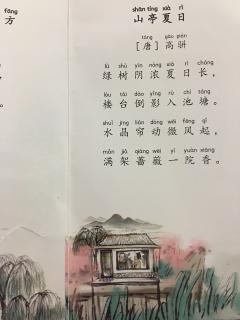 fāng
方
shān tíng xià rì
山亭夏日
táng gāo pián
[唐] 高骈
lǜ shù yīn nóng xià rì cháng
绿树阴浓夏日长，
lóu tái dào yǐng rù chí táng
楼台倒影入池塘。
shuǐ jīng lián dòng wēi fēng qǐ
水晶帘动微风起，
mǎn jià qiáng wēi yí yuàn xiāng
满架蔷薇一院香。